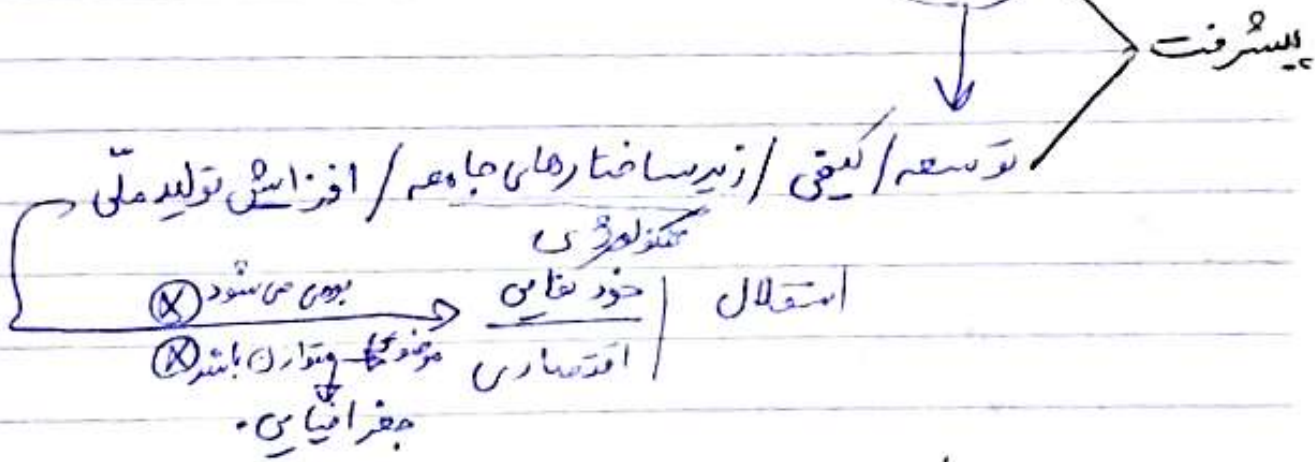 پیشرفت
توسعه / کیفی / زیرساختارهای جامعه / افزایش تولید ملّی
تکنولوژی
استقلال / خودکفایی بومی می‌شود ⊗
اقتصادی متوازن باشد ⊗
جغرافیایی.